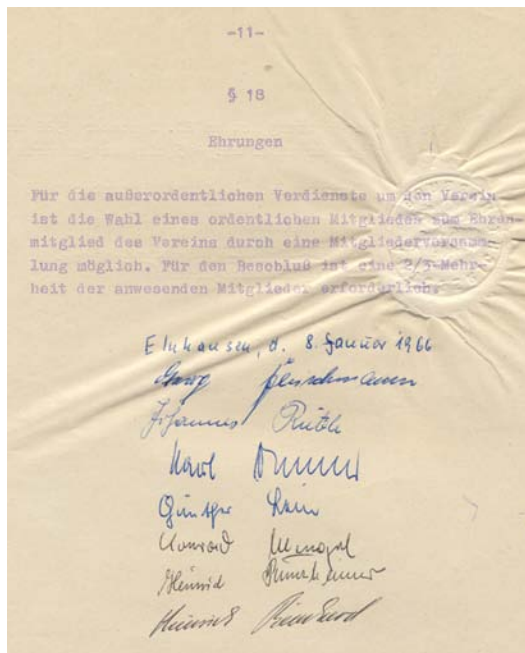 -11-
§ 18
Ehrungen
Für die außerordentlichen Verdienste um den Verein
ist die Wahl eines ordentlichen Mitgliedes zum Ehren-
mitglied des Vereins durch eine Mitgliederversamm-
lung möglich. Für den Beschluß ist eine 2/3-Mehr-
heit der anwesenden Mitglieder erforderlich.
Einhausen, d. 8. Januar 1966
Georg Fleischmann
Johannes
Karl
Günther
Konrad
Heinrich
Heinrich Reinhard